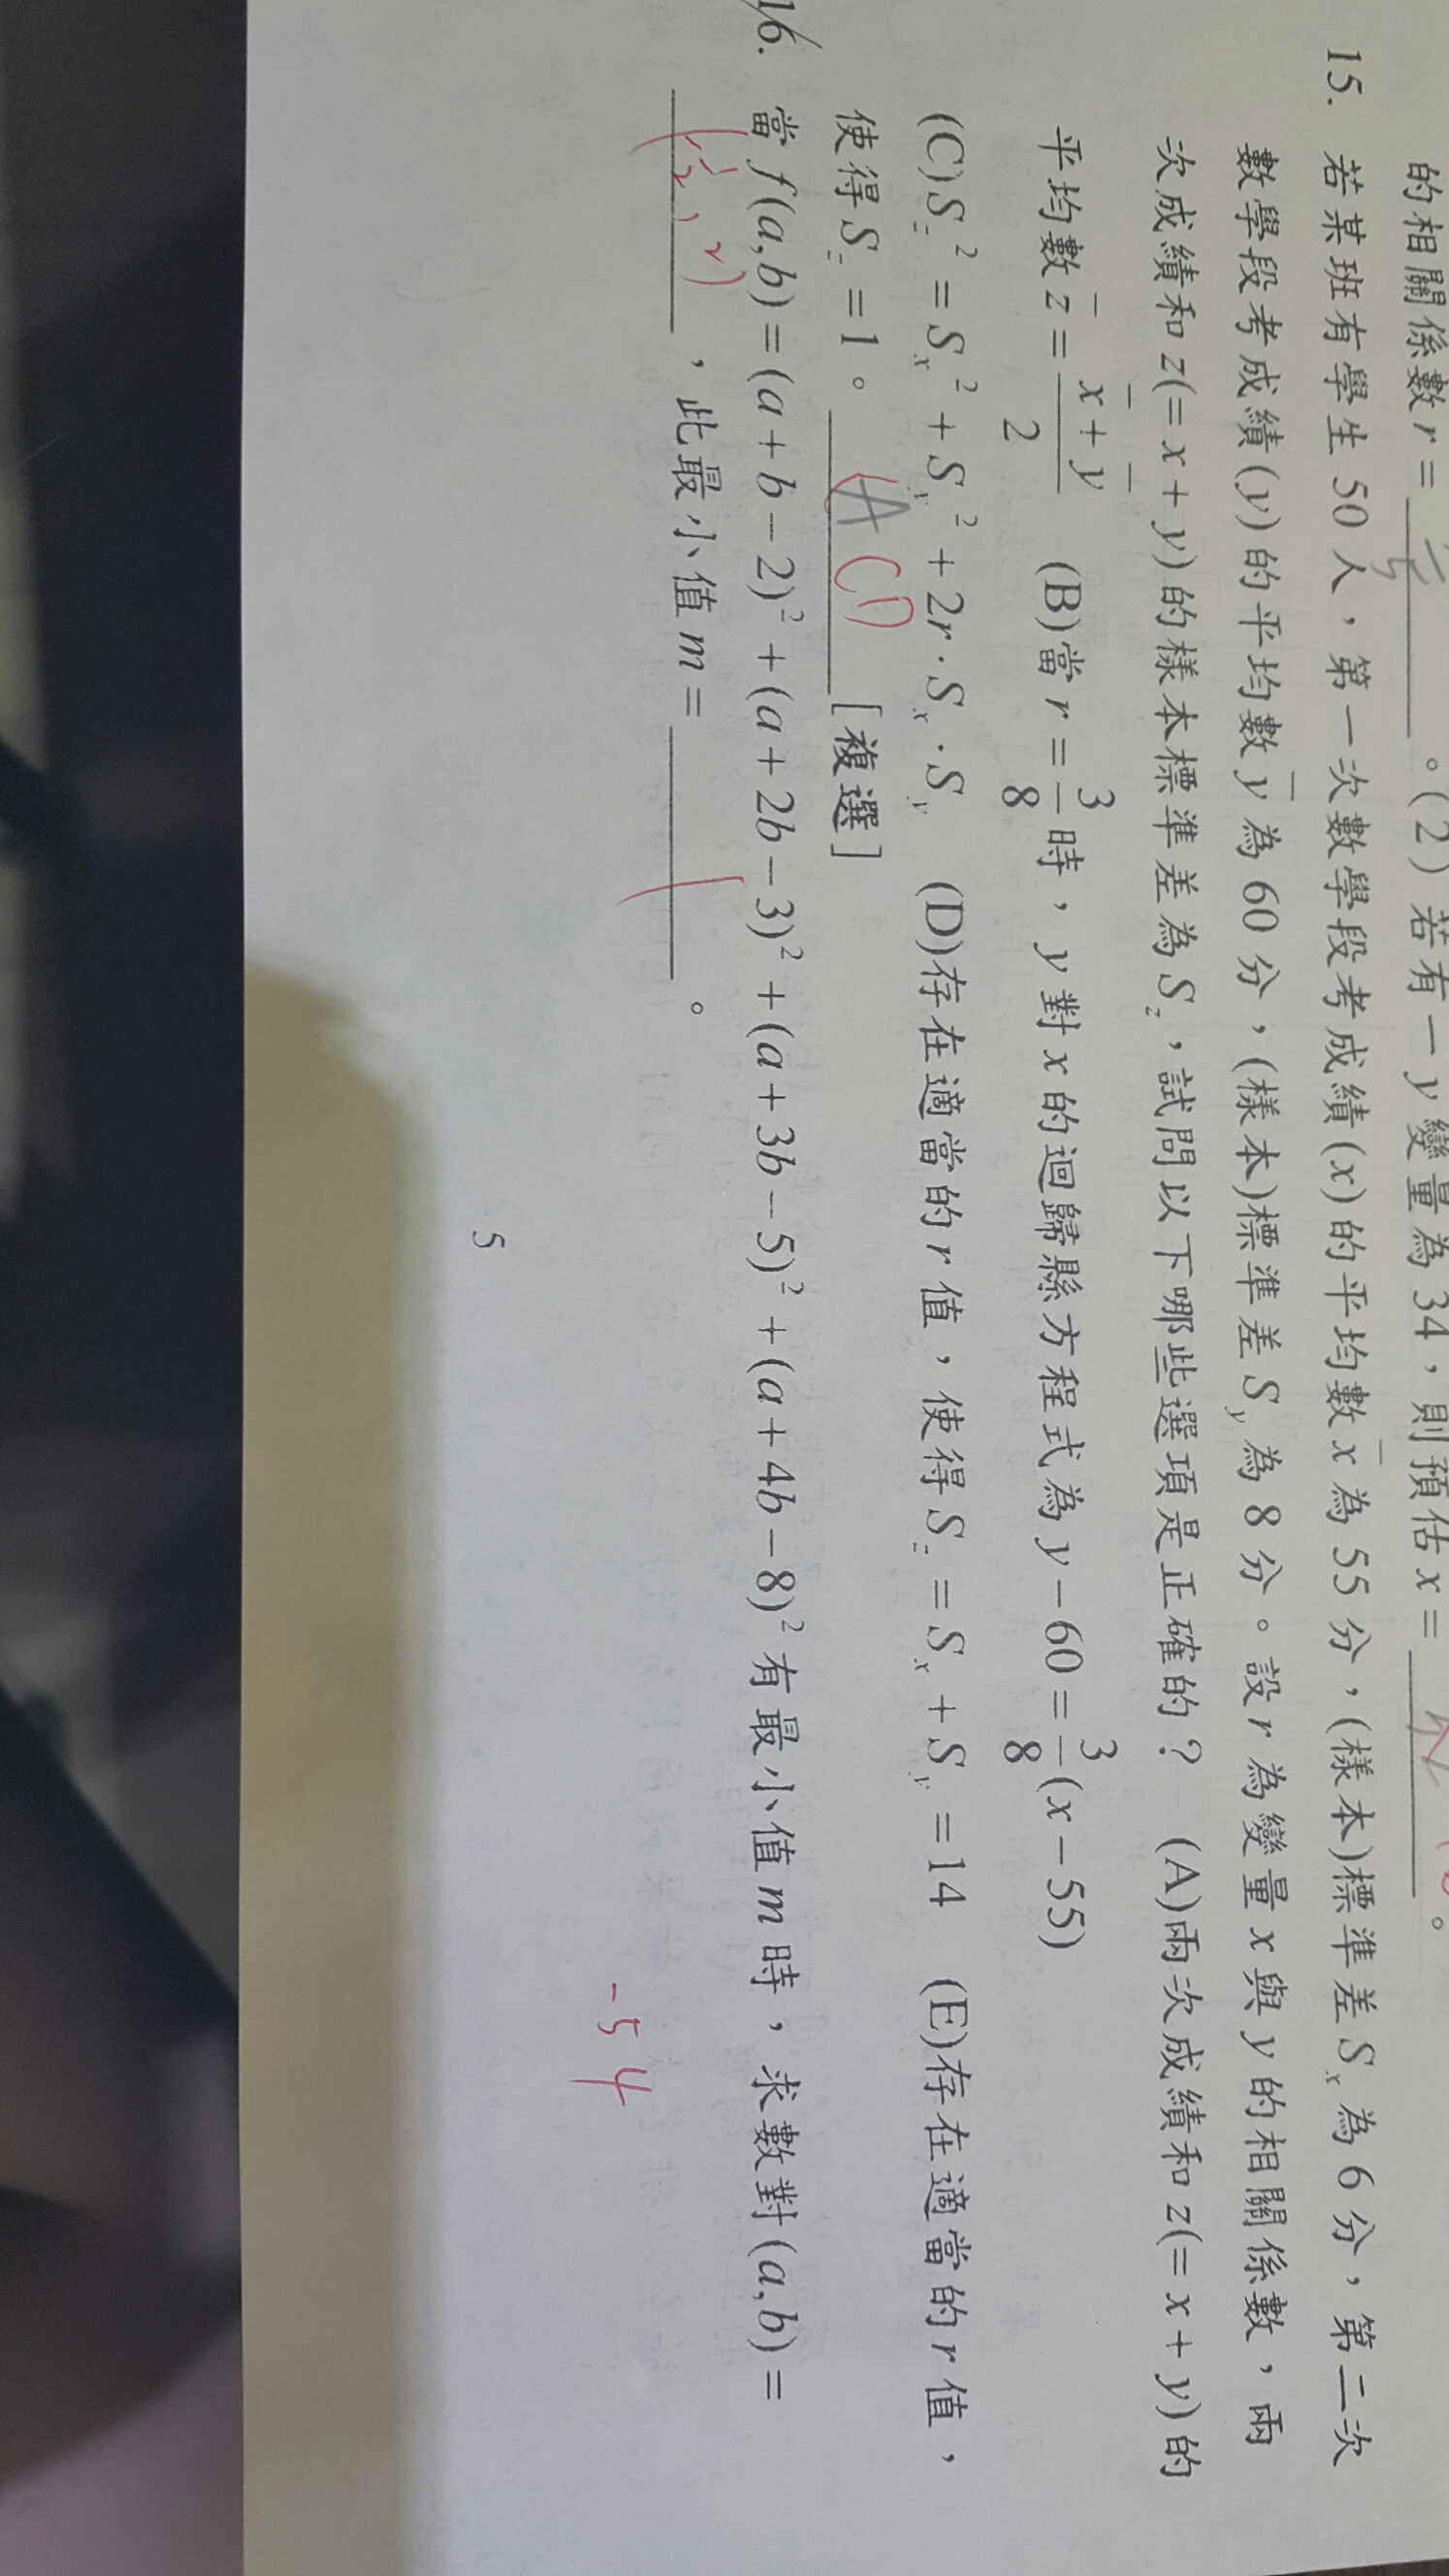 的相關係數 r = 。(2) 若有一 y 變量為 34,則預估 x = 。
15. 若某班有學生 50 人,第一次數學段考成績(x)的平均數 x̄ 為 55 分,(樣本)標準差 Sₓ 為 6 分,第二次
數學段考成績(y)的平均數 ȳ 為 60 分,(樣本)標準差 S_y 為 8 分。設 r 為變量 x 與 y 的相關係數,兩
次成績和 z(= x + y)的樣本標準差為 S_z,試問以下哪些選項是正確的? (A)兩次成績和 z(= x + y)的
平均數 z̄ = (x̄ + ȳ)/2 (B)當 r = 3/8 時,y 對 x 的迴歸縣方程式為 y − 60 = 3/8 (x − 55)
(C) S_z² = Sₓ² + S_y² + 2r · Sₓ · S_y (D)存在適當的 r 值,使得 S_z = Sₓ + S_y = 14 (E)存在適當的 r 值,
使得 S_z = 1。 A CD [複選]
16. 當 f(a,b) = (a + b − 2)² + (a + 2b − 3)² + (a + 3b − 5)² + (a + 4b − 8)² 有最小值 m 時,求數對(a,b) =
(-1/2, 2) ,此最小值 m = 。
-54
5